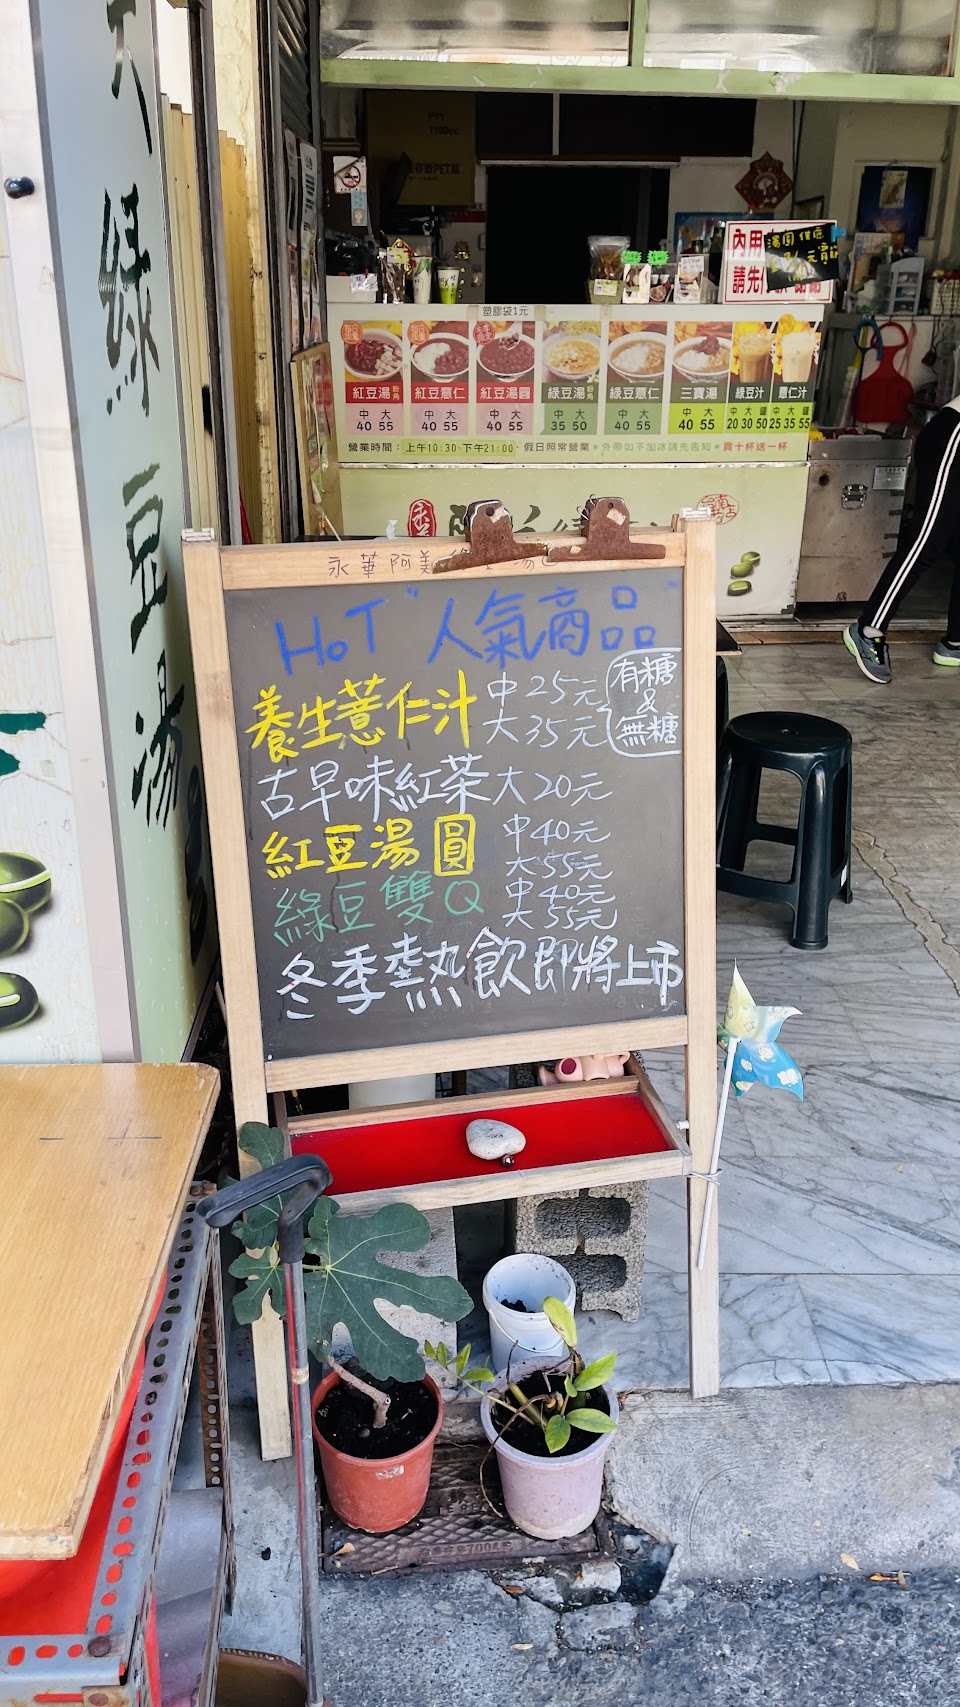 綠豆湯
禁
PT1
1100cc
內用
請先
湯圓供應
塑膠袋1元
紅豆湯
紅豆薏仁
紅豆湯圓
綠豆湯
綠豆薏仁
三寶湯
綠豆汁
薏仁汁
中 大
40 55
中 大
40 55
中 大
40 55
中 大
35 50
中 大
40 55
中 大
40 55
中 大 罐
20 30 50
中 大 罐
25 35 55
營業時間：上午10:30-下午21:00・假日照常營業＊外帶如不加冰請先告知＊買十杯送一杯
永華阿美
HOT "人氣商品"
養生薏仁汁 中25元 大35元 有糖&無糖
古早味紅茶 大20元
紅豆湯圓 中40元 大55元
綠豆雙Q 中40元 大55元
冬季熱飲即將上市